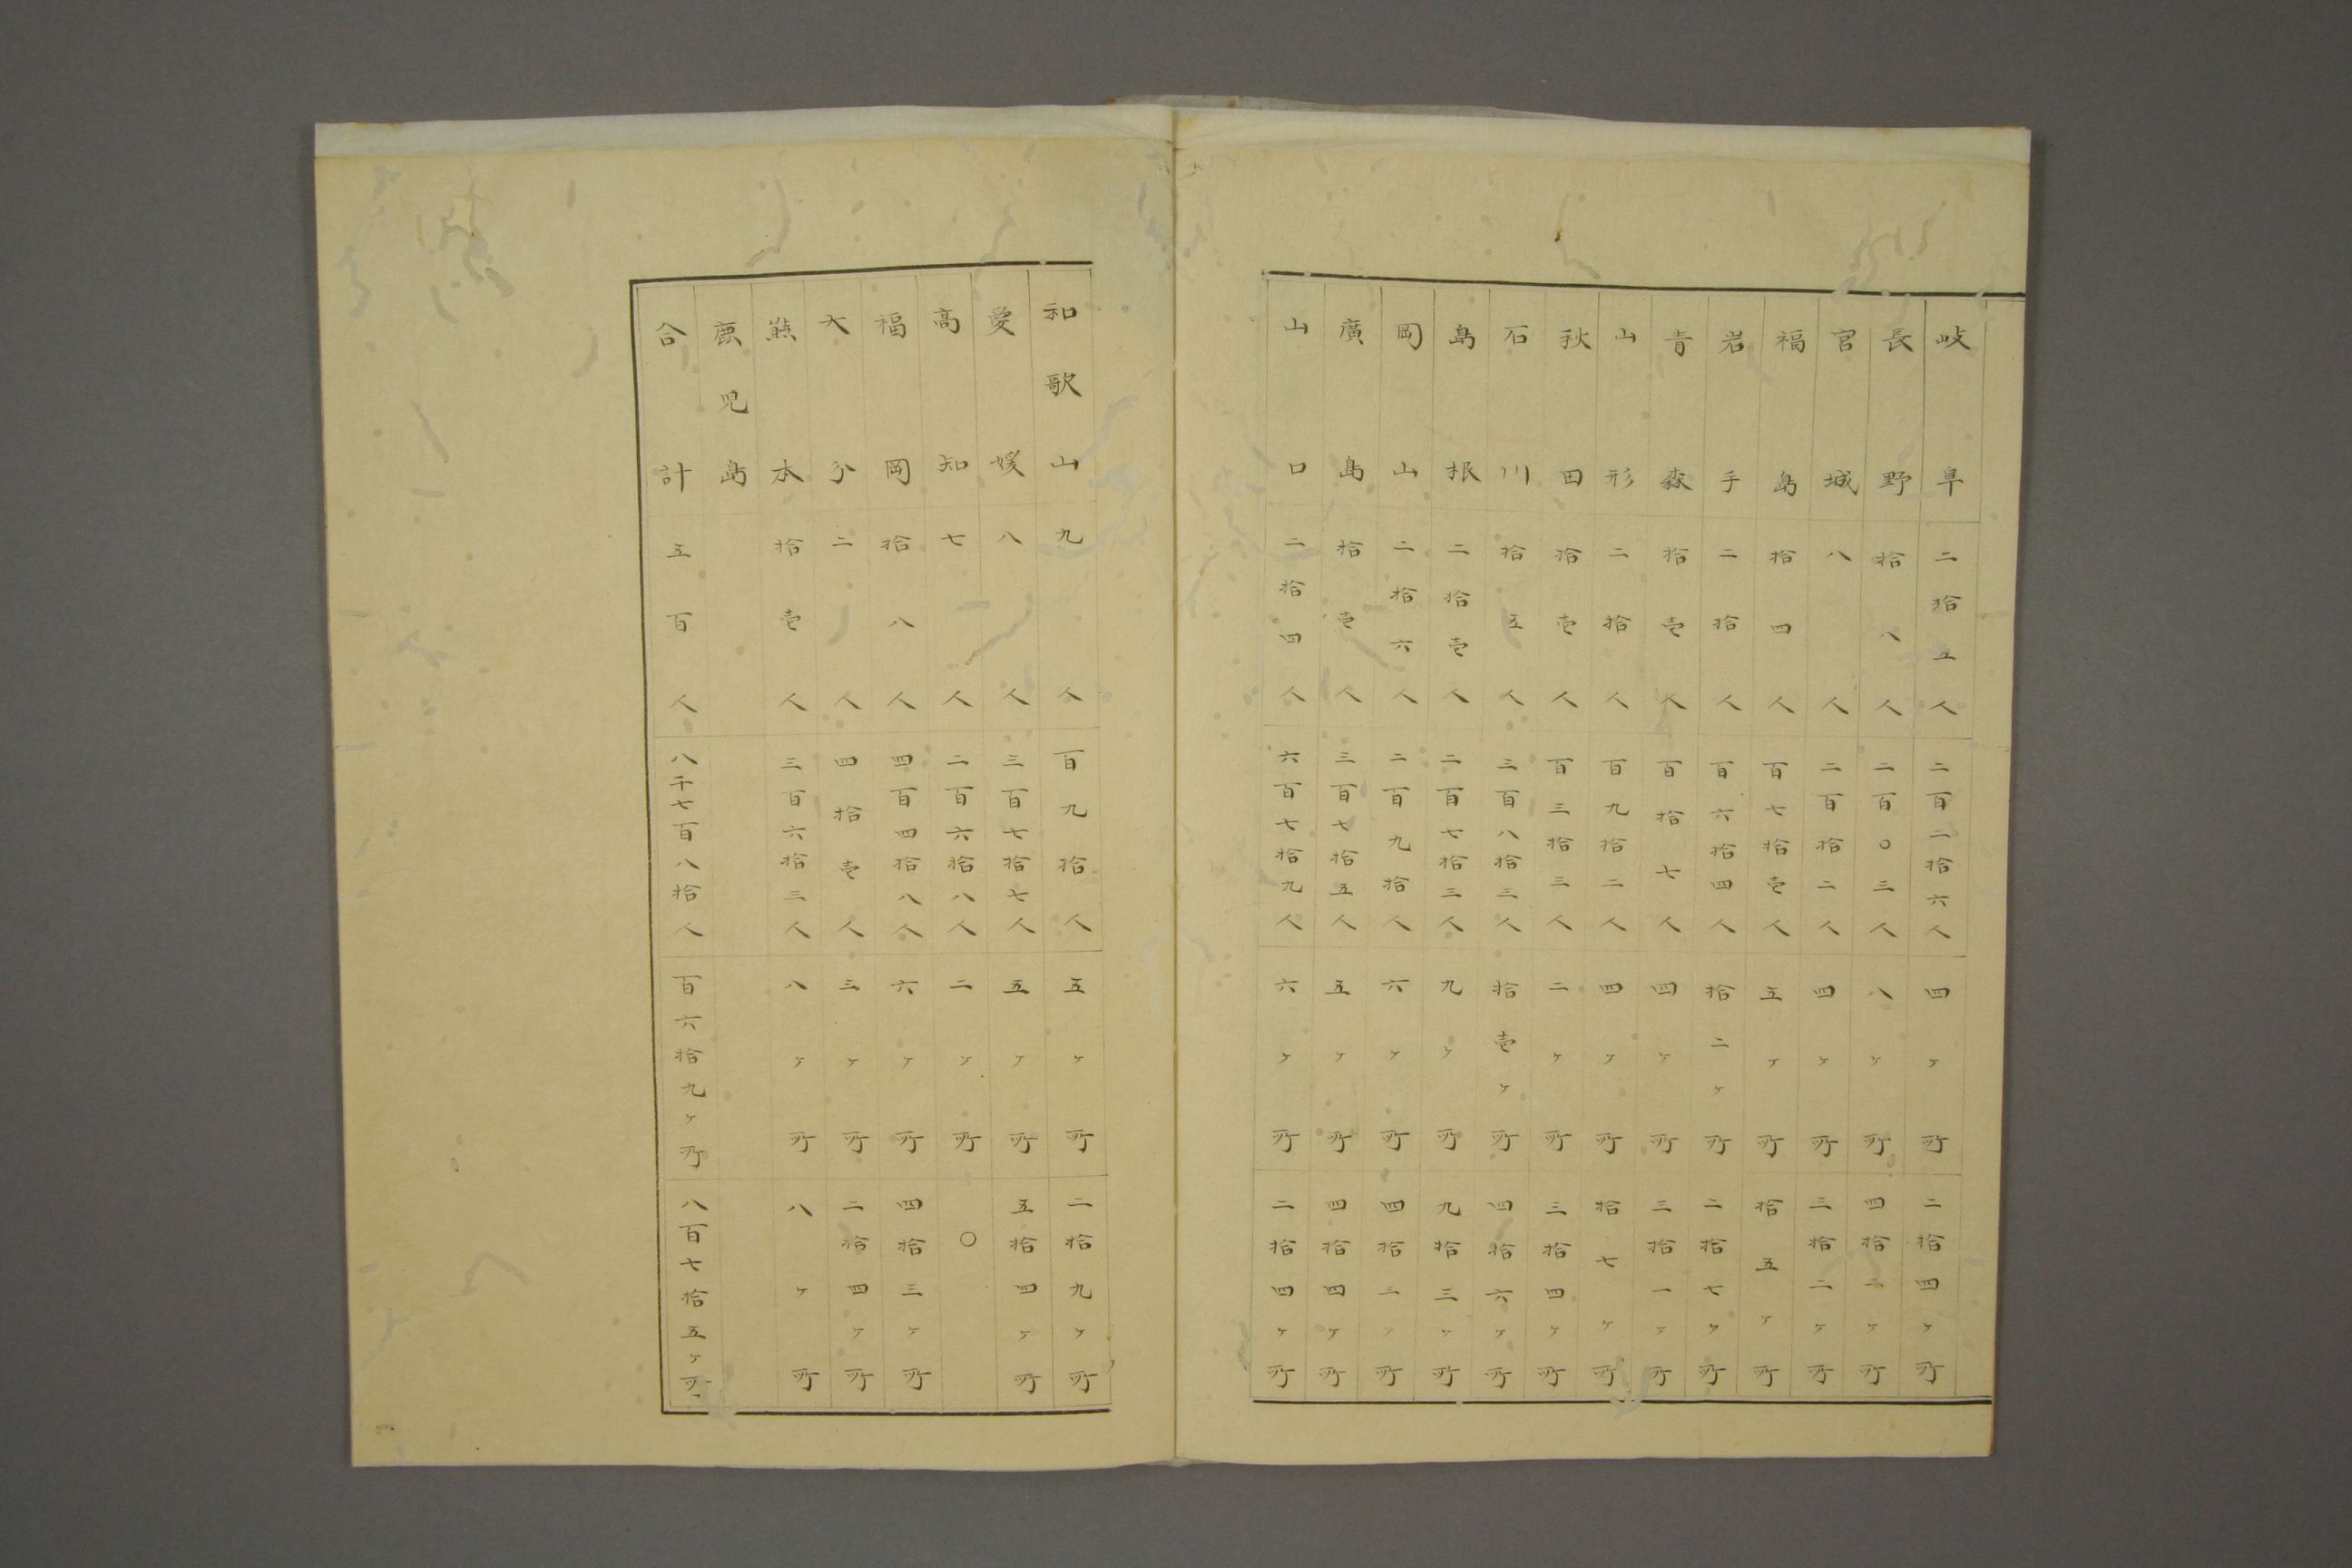 岐阜 二拾五人 二百二拾六人 四ヶ所 二拾四ヶ所
長野 拾八人 二百〇三人 八ヶ所 四拾二ヶ所
宮城 八人 二百拾二人 四ヶ所 三拾二ヶ所
福島 拾四人 百七拾壱人 五ヶ所 拾五ヶ所
岩手 二拾人 百六拾四人 拾二ヶ所 二拾七ヶ所
青森 拾壱人 百拾七人 四ヶ所 三拾一ヶ所
山形 二拾人 百九拾二人 四ヶ所 拾七ヶ所
秋田 拾壱人 百三拾三人 二ヶ所 三拾四ヶ所
石川 拾五人 三百八拾三人 拾壱ヶ所 四拾六ヶ所
島根 二拾壱人 二百七拾三人 九ヶ所 九拾三ヶ所
岡山 二拾六人 二百九拾人 六ヶ所 四拾三ヶ所
廣島 拾壱人 三百七拾五人 五ヶ所 四拾四ヶ所
山口 二拾四人 六百七拾九人 六ヶ所 二拾四ヶ所
和歌山 九人 百九拾人 五ヶ所 二拾九ヶ所
愛媛 八人 三百七拾七人 五ヶ所 五拾四ヶ所
高知 七人 二百六拾八人 二ヶ所 〇
福岡 拾八人 四百四拾八人 六ヶ所 四拾三ヶ所
大分 二人 四拾壱人 三ヶ所 二拾四ヶ所
熊本 拾壱人 三百六拾三人 八ヶ所 八ヶ所
鹿児島
合計 五百人 八千七百八拾人 百六拾九ヶ所 八百七拾五ヶ所